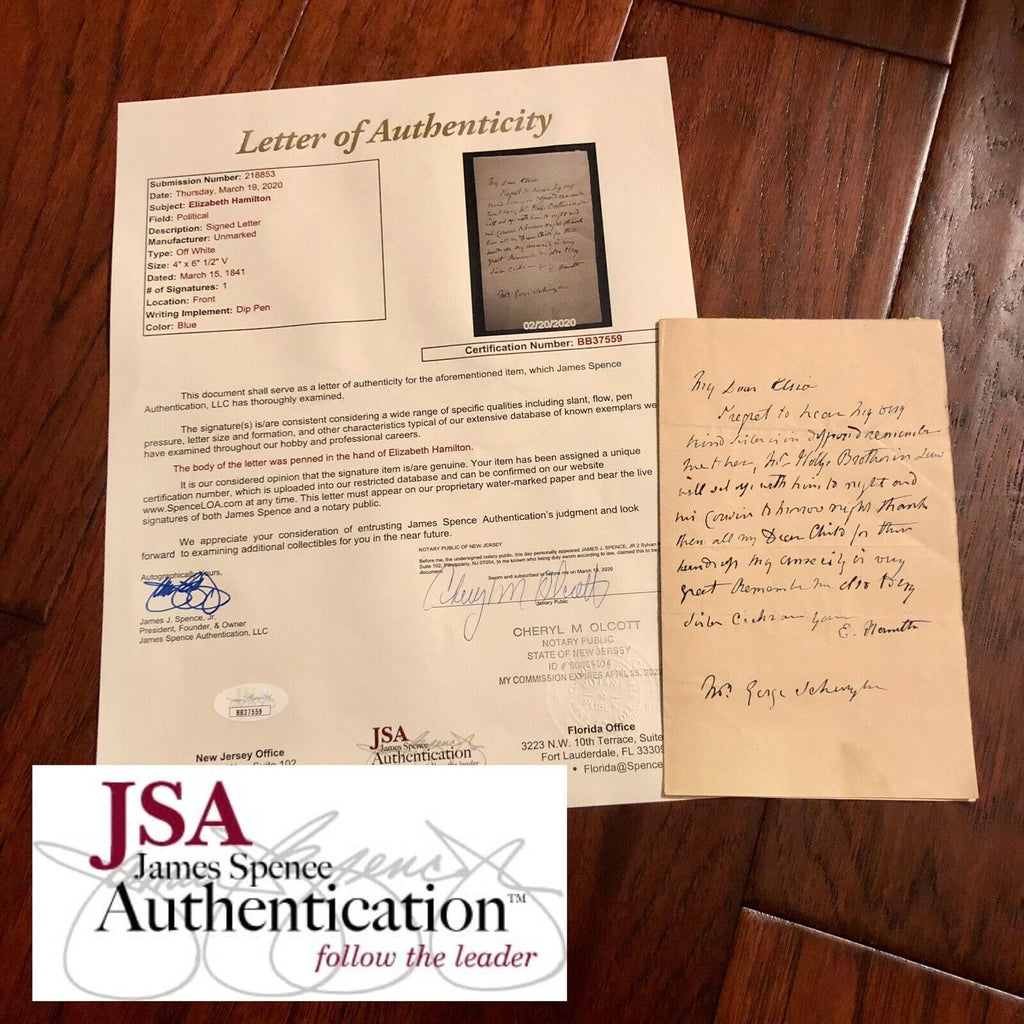 Letter of Authenticity
Submission Number: 218853
Date: Thursday, March 19, 2020
Subject: Elizabeth Hamilton
Field: Political
Description: Signed Letter
Manufacturer: Unmarked
Type: Off White
Size: 4" x 6" 1/2" V
Dated: March 15, 1841
# of Signatures: 1
Location: Front
Writing Implement: Dip Pen
Color: Blue
02/20/2020
Certification Number: BB37559
This document shall serve as a letter of authenticity for the aforementioned item, which James Spence
Authentication, LLC has thoroughly examined.
The signature(s) is/are consistent considering a wide range of specific qualities including slant, flow, pen
pressure, letter size and formation, and other characteristics typical of our extensive database of known exemplars we
have examined throughout our hobby and professional careers.
The body of the letter was penned in the hand of Elizabeth Hamilton.
It is our considered opinion that the signature item is/are genuine. Your item has been assigned a unique
certification number, which is uploaded into our restricted database and can be confirmed on our website
www.SpenceLOA.com at any time. This letter must appear on our proprietary water-marked paper and bear the live
signatures of both James Spence and a notary public.
We appreciate your consideration of entrusting James Spence Authentication's judgment and look
forward to examining additional collectibles for you in the near future.
NOTARY PUBLIC OF NEW JERSEY
Before me, the undersigned notary public, this day personally appeared JAMES J. SPENCE, JR 2 Sylvan
Suite 102, Parsippany, NJ 07054, to me known who being duly sworn according to law, claimed this to be
document.
Sworn and subscribed to before me on March 19, 2020
Notary Public
Autographically Yours,
James J. Spence, Jr.
President, Founder, & Owner
James Spence Authentication, LLC
CHERYL M OLCOTT
NOTARY PUBLIC
STATE OF NEW JERSEY
ID #
MY COMMISSION EXPIRES APRIL 25, 202
BB37559
New Jersey Office
Suite 102
JSA
James Spence
Authentication
Florida Office
3223 N.W. 10th Terrace, Suite
Fort Lauderdale, FL 33309
• Florida@Spence
My Dear Eliza
I regret to hear my very
kind sister is in disposed remember
me to her, Mr Brother in Law
will set up with him to night and
his Cousin to morrow night thank
them all my Dear Child for their
kindness my anxiety is very
great Remember me also to my
sister Cochran
E. Hamilton
Mrs. George Schuyler
JSA
James Spence
Authentication™
follow the leader